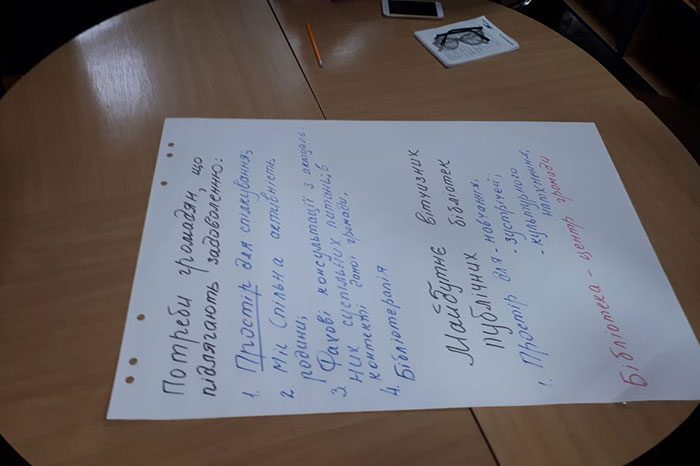 Потреби громадян, що
підлягають задоволенню:
1. Простір для спілкування;
2. Міс Спільна активність
родини;
3 Фахові консультації з актуаль
них суспільних питань в
контексті даної громади.
4. Бібліотерапія
Майбутнє вітчизник
публічних бібліотек
1. Простір для - навчання;
- зустрічей;
- культурного
натхнення,
Бібліотека - центр громади